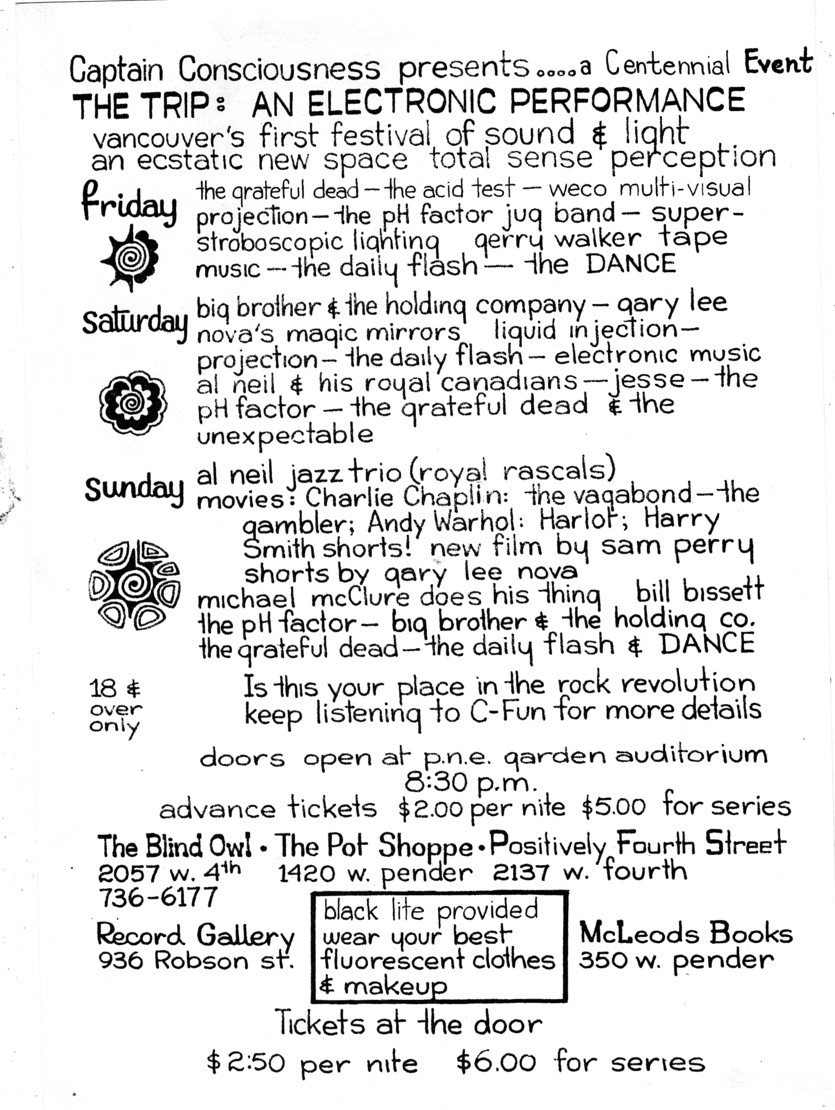 Captain Consciousness presents.....a Centennial Event
THE TRIP: AN ELECTRONIC PERFORMANCE
vancouver's first festival of sound & light
an ecstatic new space total sense perception
Friday
the grateful dead — the acid test — weco multi-visual
projection — the pH factor jug band — super-
stroboscopic lighting gerry walker tape
music — the daily flash — the DANCE
saturday
big brother & the holding company — gary lee
nova's magic mirrors liquid injection —
projection — the daily flash — electronic music
al neil & his royal canadians — jesse — the
pH factor — the grateful dead & the
unexpectable
sunday
al neil jazz trio (royal rascals)
movies: Charlie Chaplin: the vagabond — the
gambler; Andy Warhol: Harlot; Harry
Smith shorts! new film by sam perry
shorts by gary lee nova
michael mcClure does his thing bill bissett
the pH factor — big brother & the holding co.
the grateful dead — the daily flash & DANCE
18 &
over
only
Is this your place in the rock revolution
keep listening to C-Fun for more details
doors open at p.n.e. garden auditorium
8:30 p.m.
advance tickets $2.00 per nite $5.00 for series
The Blind Owl • The Pot Shoppe • Positively Fourth Street
2057 w. 4th 1420 w. pender 2137 w. fourth
736-6177
Record Gallery
936 Robson st.
black lite provided
wear your best
fluorescent clothes
& makeup
McLeods Books
350 w. pender
Tickets at the door
$2:50 per nite $6.00 for series